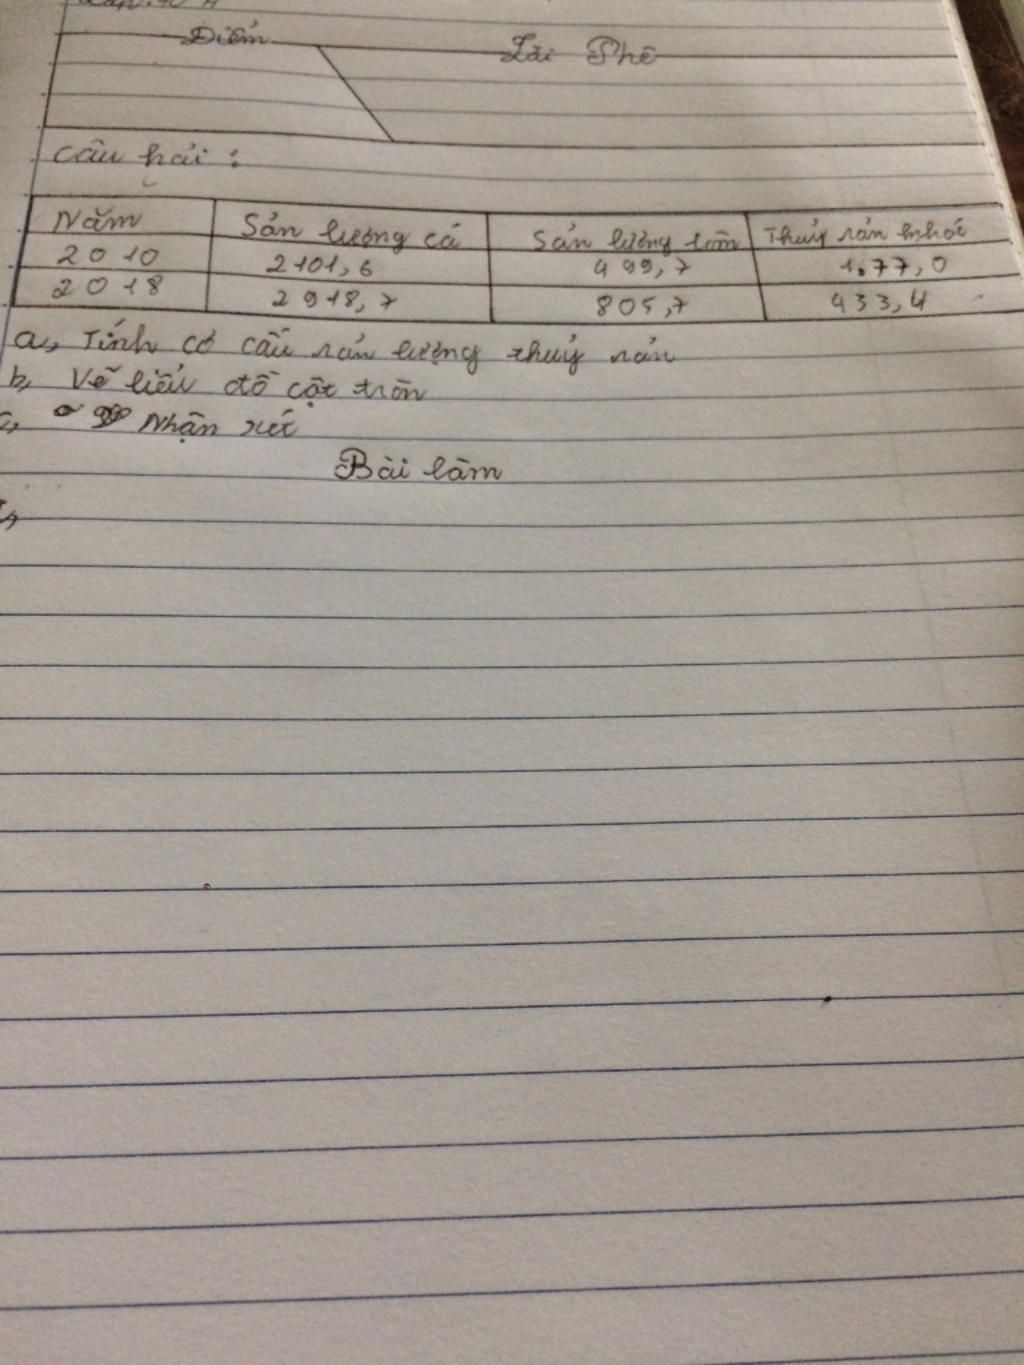 Điểm Lời Phê
Câu hỏi :
Năm Sản lượng cá Sản lượng tôm Thuỷ sản khác
2010 2101,6 499,7 1.77,0
2018 2918,7 805,7 433,4
a, Tính cơ cấu sản lượng thuỷ sản
b, Vẽ biểu đồ cột tròn
c, Nhận xét
Bài làm